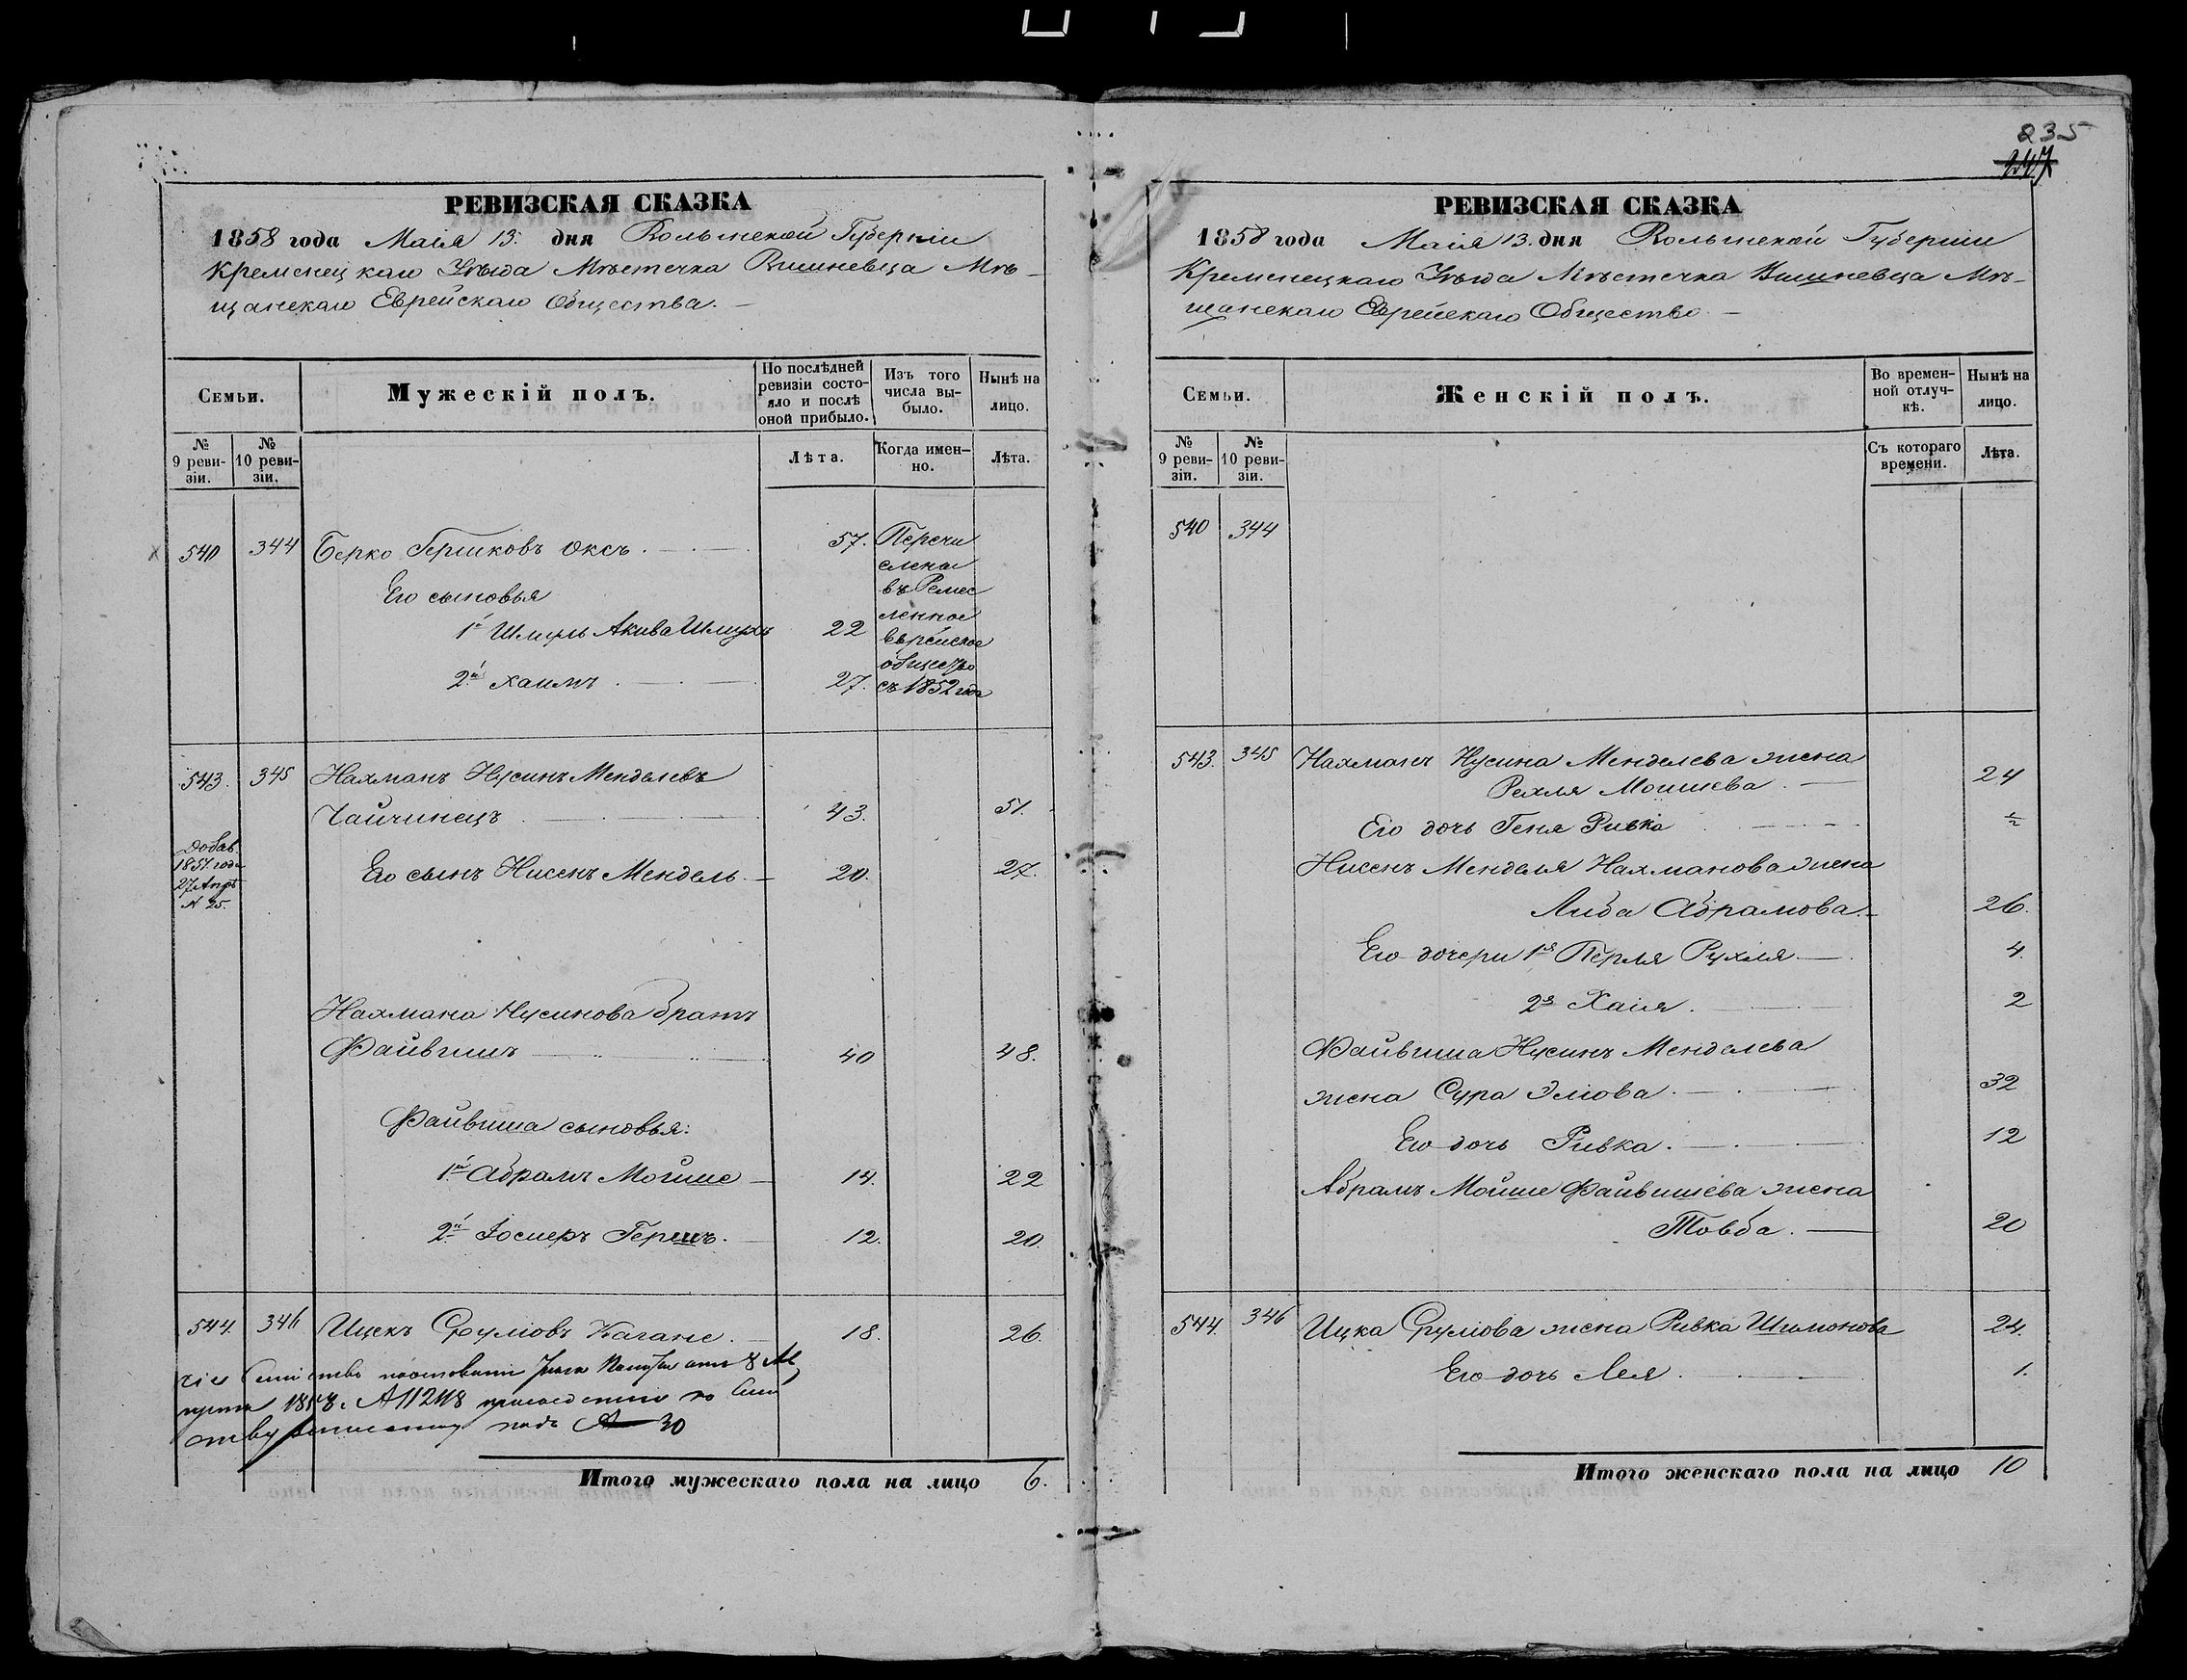 235
247
РЕВИЗСКАЯ СКАЗКА
1858 года Маія 13. дня Волынской Губерніи
Кременецкаго Уѣзда Мѣстечка Вишневца Мѣ-
щанскаго Еврейскаго Общества. —
Семьи.
Мужескій полъ.
По послѣдней ревизіи состояло и послѣ оной прибыло.
Изъ того числа выбыло.
Нынѣ на лицо.
№ 9 ревизіи.
№ 10 ревизіи.
Лѣта.
Когда именно.
Лѣта.
540 344 Берко Гершковъ Оксъ. 57. Перечи
слены
Его сыновья въ Ремес
ленное
1й Шмуль Акива 22 Еврейское
общество
2й Хаимъ 27. съ 1852 года
543. 345 Нахманъ Нусинъ Менделевъ
Чайчинецъ 43. 51.
Добав.
1851 года
27 Апрѣ
№ 25.
Его сынъ Нисенъ Мендель. — 20. 27.
Нахмана Нусинова братъ
Файвишъ 40 48.
Файвиша сыновья:
1й Абрамъ Мойше — 14. 22
2й Іосиеръ Гершъ. 12. 20.
544. 346 Ицекъ Сруліовъ Кагане. 18. 26.
подъ № 30
Итого мужескаго пола на лицо 6.
РЕВИЗСКАЯ СКАЗКА
1858 года Маія 13. дня Волынской Губерніи
Кременецкаго Уѣзда Мѣстечка Вишневца Мѣ-
щанскаго Еврейскаго Общество —
Семьи.
Женскій полъ.
Во временной отлучкѣ.
Нынѣ на лицо.
№ 9 ревизіи.
№ 10 ревизіи.
Съ котораго времени.
Лѣта.
540 344
543. 345 Нахманъ Нусина Менделева жена
Рехля Мошкева. — 24
Его дочь Геня Ривка ½
Нисенъ Менделя Нахманова жена
Либа Абрамова. 26.
Его дочери 1я Перля Рухля 4.
2я Хаія. 2
Файвиша Нусинъ Менделева
жена Сура Эліова. 32
Его дочь Ривка. 12
Абрамъ Мойше Файвишева жена
Товба. — 20
544. 346 Ицка Сруліова жена Ривка Шимонова 24.
Его дочь Лея. 1.
Итого женскаго пола на лицо 10